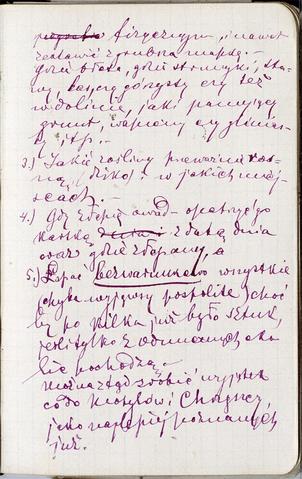 fizycznym, i nawet
zestawić z grubsza mapkę. –
gdzie błota, gdzie strumyki, sta-
wy, bardzo górzysty czy też
w dolinie, jaki panujący
grunt, wapienny czy glinias-
ty itp. –
3.) Jakie rośliny przeważnie ros-
ną (dziko) – w jakich miej-
scach. –
4.) Gdy złapię owad – opatrzyć go
kartką z datą dnia
oraz gdzie złapany, a
5.) Łapać bezwarunkowo wszystkie
(chyba wyjąwszy pospolite) choć
by po kilka już było sztuk,
jeśli tylko z odmiennych oko
lic pochodzą. –
można ztąd zrobić wyjątek
co do motylów i Chrząszczy,
jako najlepiej poznanych
już.